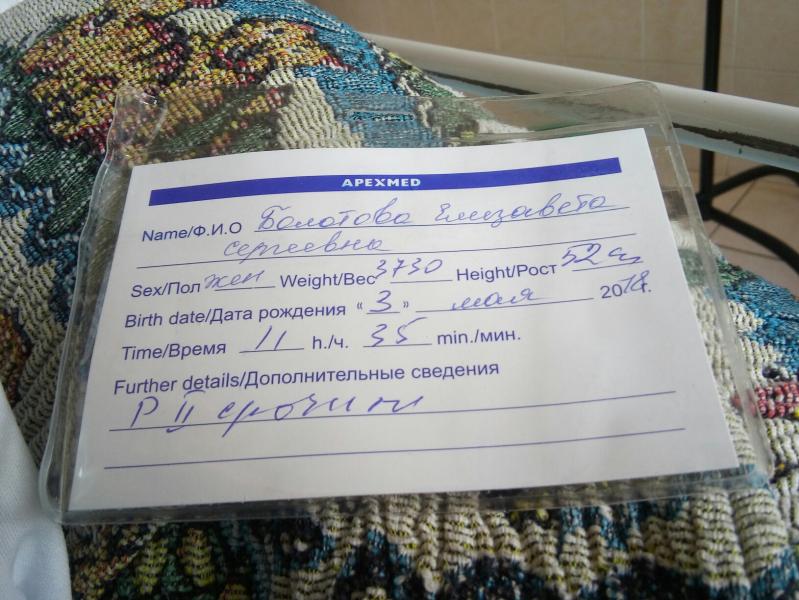 APEXMED
Name/Ф.И.О Болотова Елизавета
Сергеевна
Sex/Пол жен Weight/Вес 3730 Height/Рост 52 см
Birth date/Дата рождения « 3 » мая 2018г.
Time/Время 11 h./ч. 35 min./мин.
Further details/Дополнительные сведения
Р II срочные